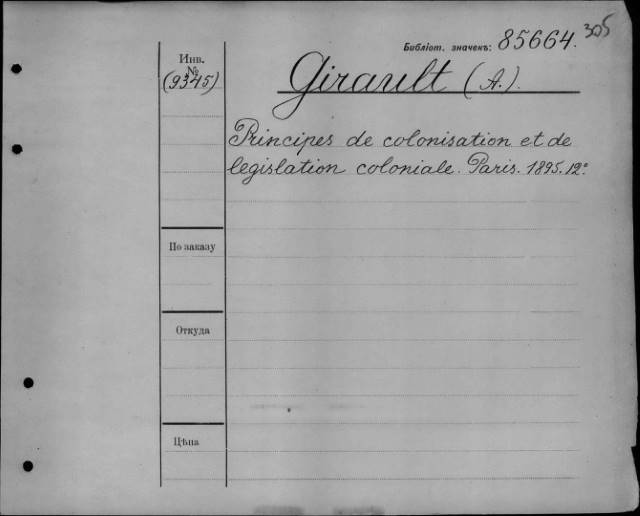 305
Библіот. значекъ: 85664.
Инв.
№
(9345)
Girault (A.).
Principes de colonisation et de
legislation coloniale. Paris. 1895. 12°.
По заказу
Откуда
Цѣна